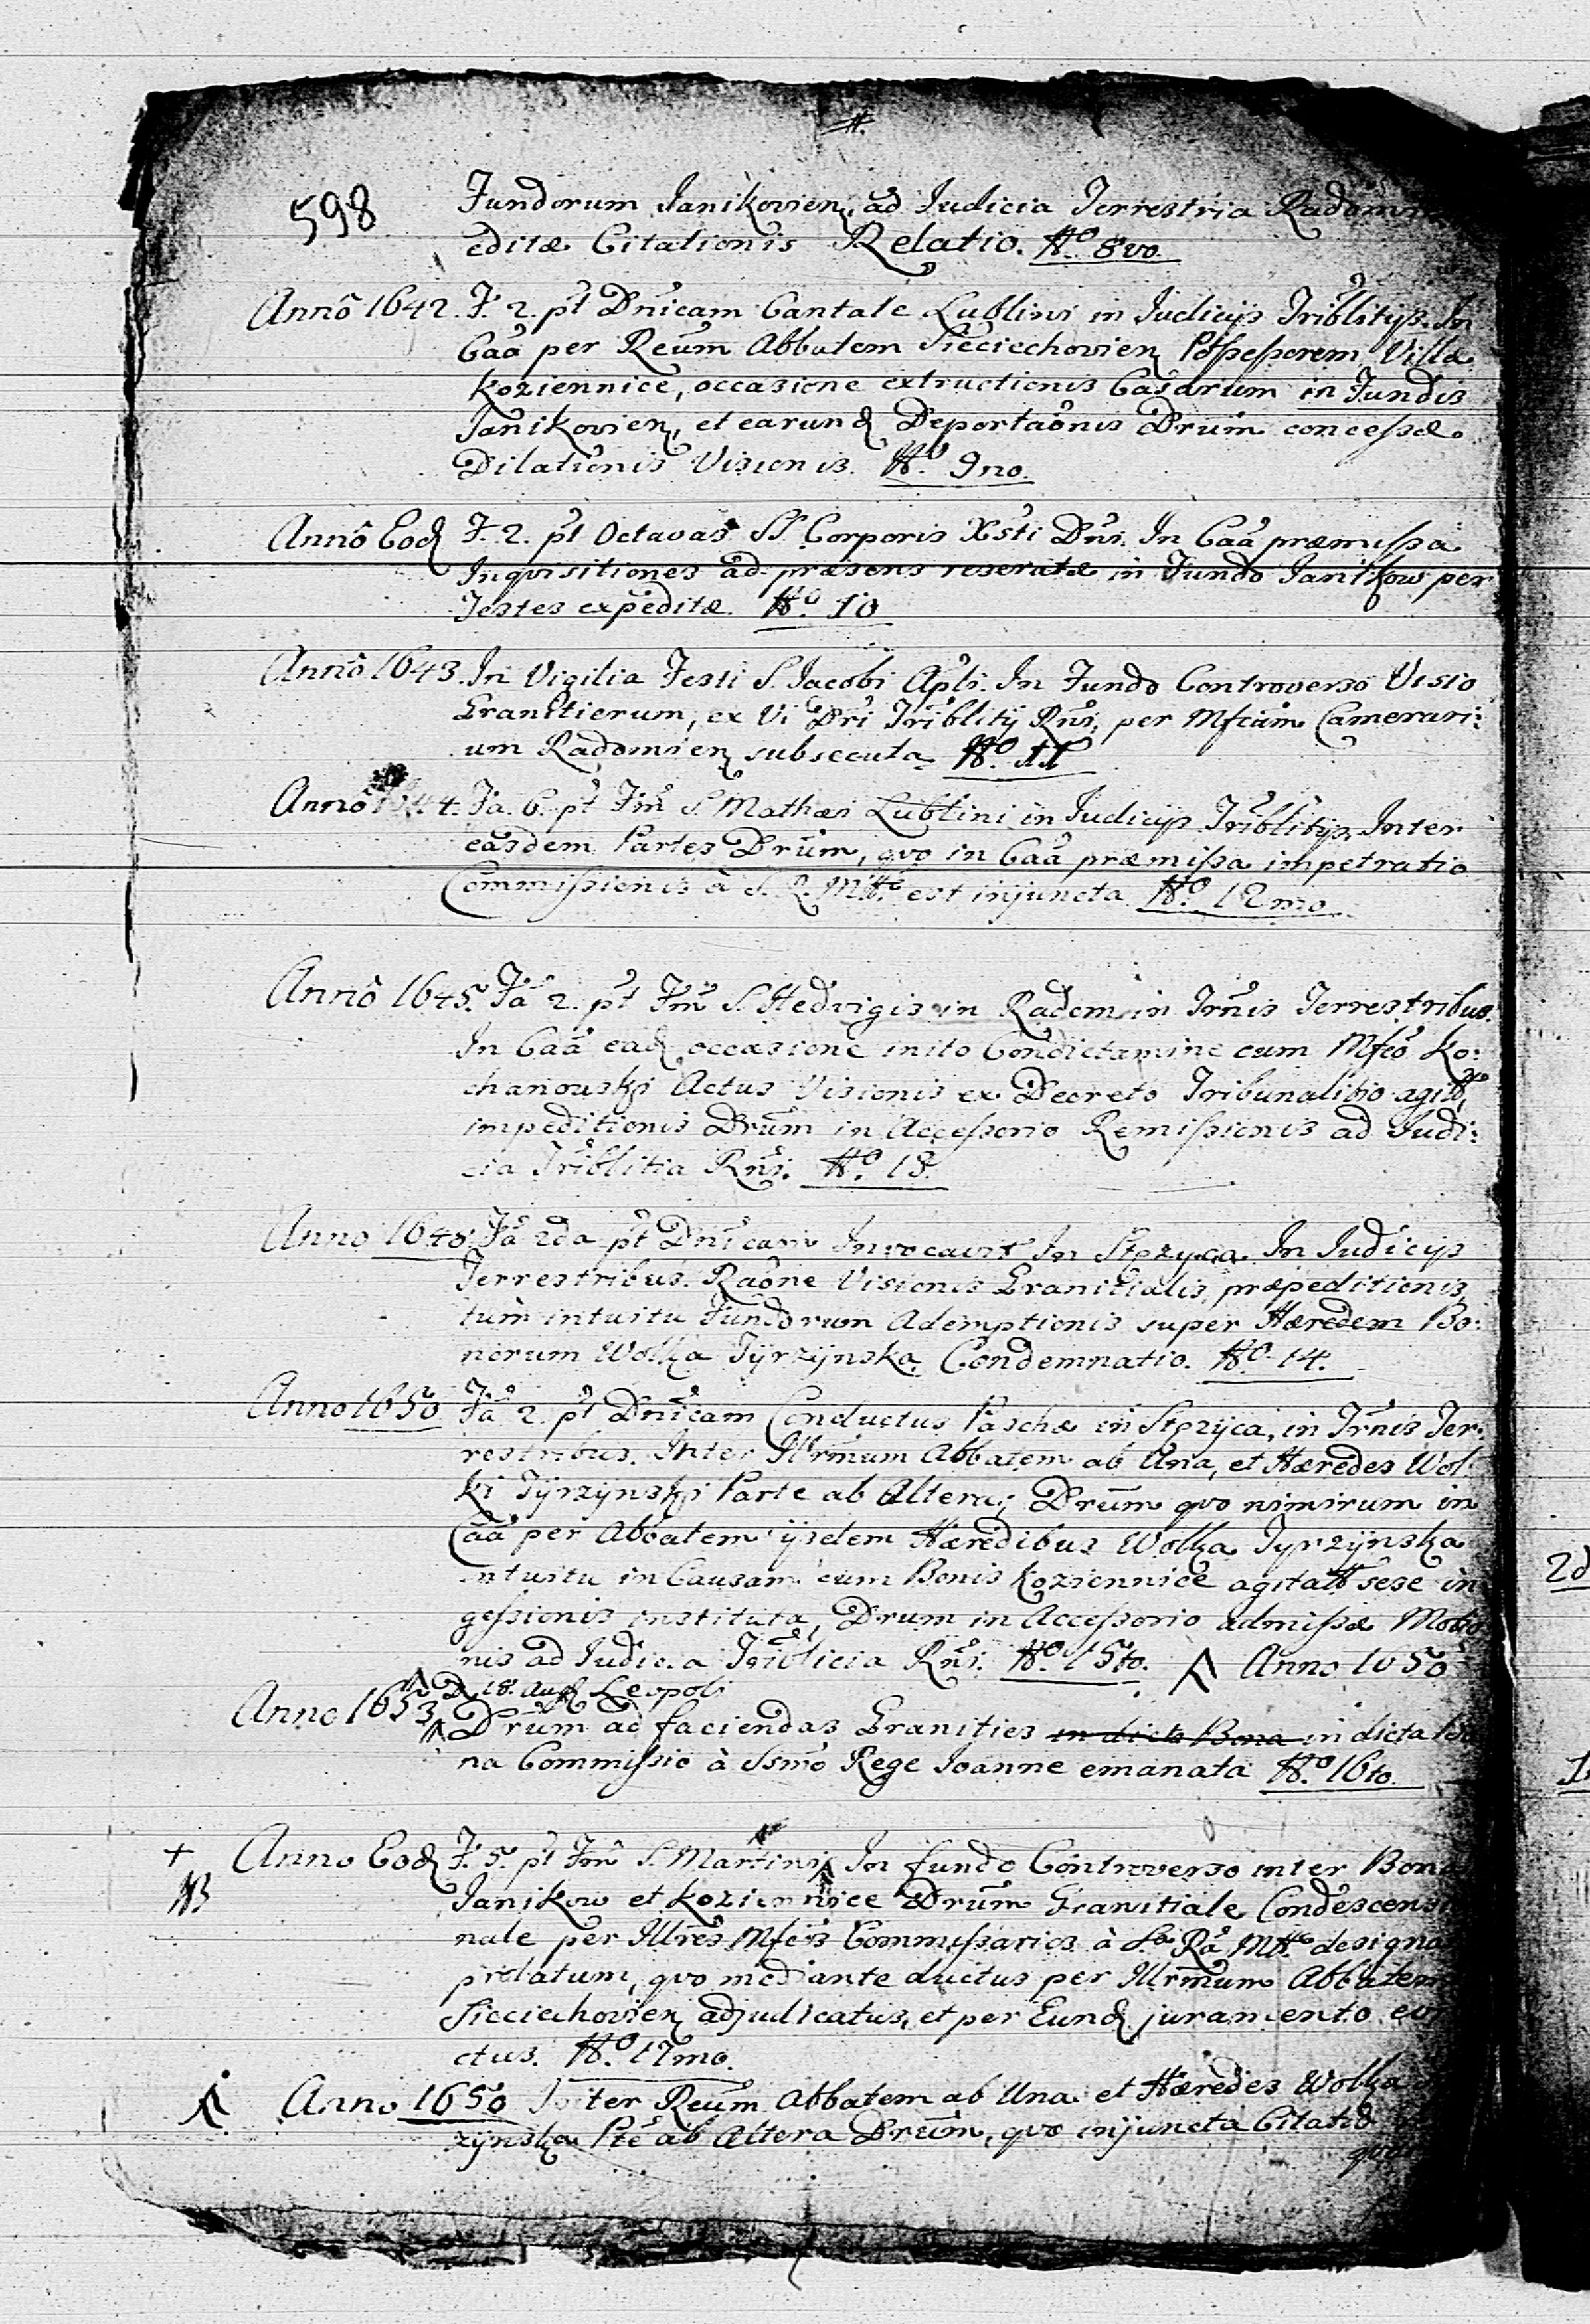 #.
598
Fundorum Janikovien, ad Judicia Terrestria
editæ Citationis Relatio. No 8vo.
Anno 1642. F. 2. pt Dnicam Cantate Lublini in Judicijs Triblitijs. In
Caa per Reum Abbatem Sieciechovien Possessorem Villæ
Koziennice, occasione extructionis Casarum in Fundis
Janikovien, et earund Deportaonis Drum concessæ
Dilationis Visionis. No. 9no.
Anno Eod F. 2. pt Octavas SS. Corporis Xsti Dni. In Caa præmissa
Inquisitiones ad præsens reseratæ in Fundo Janikow per
Testes expeditæ. No. 10
Anno 1643. In Vigilia Festi S. Jacobi Apli. In Fundo Controverso Visio
Granitierum, ex Vi Dri Triblitij Rni, per Mfcum Camerari:
um Radomien subsecuta. No. 11
Anno 1644. Fa. 6. pt Fm S. Mathæi Lublini in Judicijs Triblitijs, Inter
easdem Partes Drum, qvo in Caa præmissa impetratio
Commissionis à S. R. Mtte est injuncta No. 12mo
Anno 1645. Fa 2. pt Fm S. Hedvigis in Radom in Trnis Terrestribus.
In Caa ead occasione inito Condictamine cum Mfco Ko:
chanowski Actus Visionis ex Decreto Tribunalitio
impeditionis Drum in Accessorio Remissionis ad Judi:
cia Triblitia Rni. No. 13.
Anno 1648. Fa 2da pt Dnicam Invocavit In Stęzyca In Judicijs
Terrestribus. Raone Visionis Granitialis, præpeditionis,
tum intuitu Fundorum Ademptionis super Hæredem Bo:
norum Wolka Tyrzynska Condemnatio. No. 14.
Anno 1650 Fa 2. pt Dnicam Conductus Paschæ in Stęzyca, in Trnis Ter:
restribus. Inter Illrmum Abbatem ab Una, et Hæredes Wol:
ki Tyrzynski Parte ab Altera; Drum qvo nimirum in
Caa per Abbatem ijsdem Hæredibus Wolka Tyrzynska
intuitu in Causam cum Bonis Koziennice sese in
gessionis instituta, Drum in Accessorio admissæ
nis ad Judicia Triblicia Rni. No. 15to. Anno 1650
D. 18. Aug Leopoli
Anno 1653 Drum ad faciendas Granitjes in dicta Bona in dicta Bo
na Commissio à Ssmo Rege Joanne emanata No. 16to.
+ Anno Eod F. 5. pt Fm S. Martini In fundo Controverso inter Bona
NB Janikow et Koziennice Drum Granitiale
nale per Illres Mfcis Commissarios à Sa Ra Mtte
prolatum, qvo mediante ductus per Illrmum Abbatem
Sieciechovien adjudicatus, et per Eund juramento
ctus. No. 17mo.
Anno 1650 Inter Reum Abbatem ab Una et Hæredes Wolka
zynska Pte ab Altera Drum, qvo injuncta